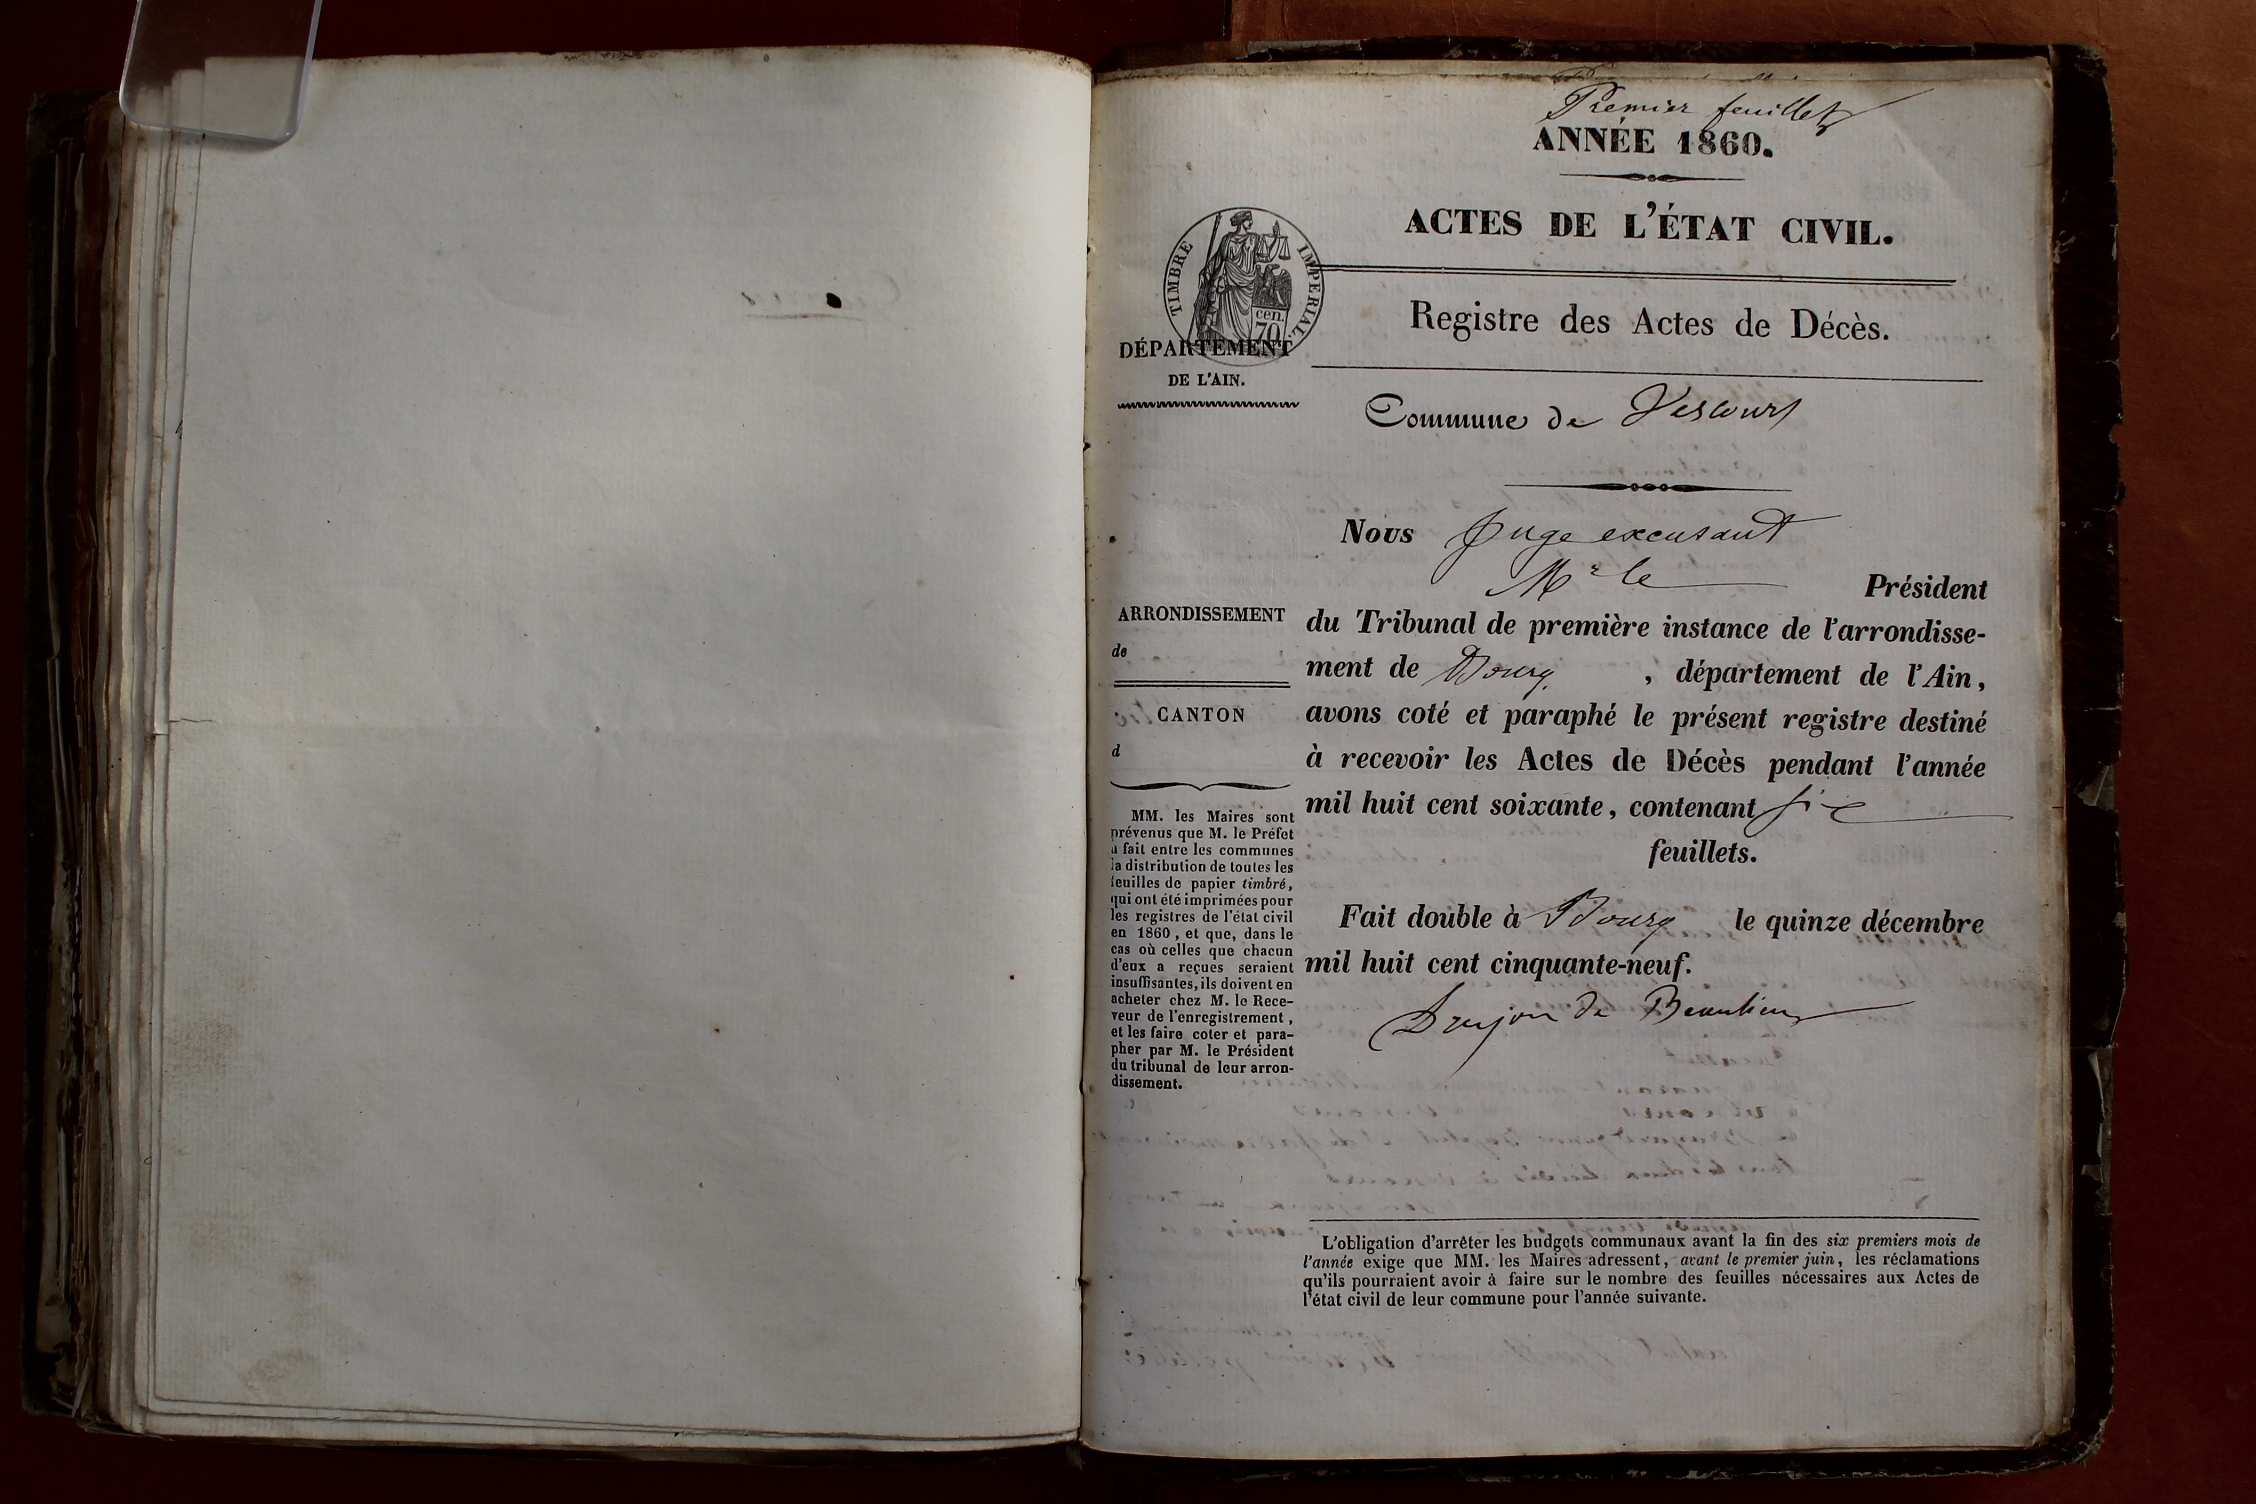 Premier feuillet
ANNÉE 1860.
ACTES DE L'ÉTAT CIVIL.
TIMBRE IMPERIAL.
cen.
70
Registre des Actes de Décès.
DÉPARTEMENT
DE L'AIN.
Commune de Vescours
Nous Juge excusant
Mr le Président
du Tribunal de première instance de l'arrondisse-
ment de Bourg, département de l'Ain,
avons coté et paraphé le présent registre destiné
à recevoir les Actes de Décès pendant l'année
mil huit cent soixante, contenant six
feuillets.
Fait double à Bourg le quinze décembre
mil huit cent cinquante-neuf.
Dujon de Beaulieu
ARRONDISSEMENT
de
CANTON
d
MM. les Maires sont
prévenus que M. le Préfet
a fait entre les communes
la distribution de toutes les
feuilles de papier timbré,
qui ont été imprimées pour
les registres de l'état civil
en 1860, et que, dans le
cas où celles que chacun
d'eux a reçues seraient
insuffisantes, ils doivent en
acheter chez M. le Rece-
veur de l'enregistrement,
et les faire coter et para-
pher par M. le Président
du tribunal de leur arron-
dissement.
L'obligation d'arrêter les budgets communaux avant la fin des six premiers mois de
l'année exige que MM. les Maires adressent, avant le premier juin, les réclamations
qu'ils pourraient avoir à faire sur le nombre des feuilles nécessaires aux Actes de
l'état civil de leur commune pour l'année suivante.